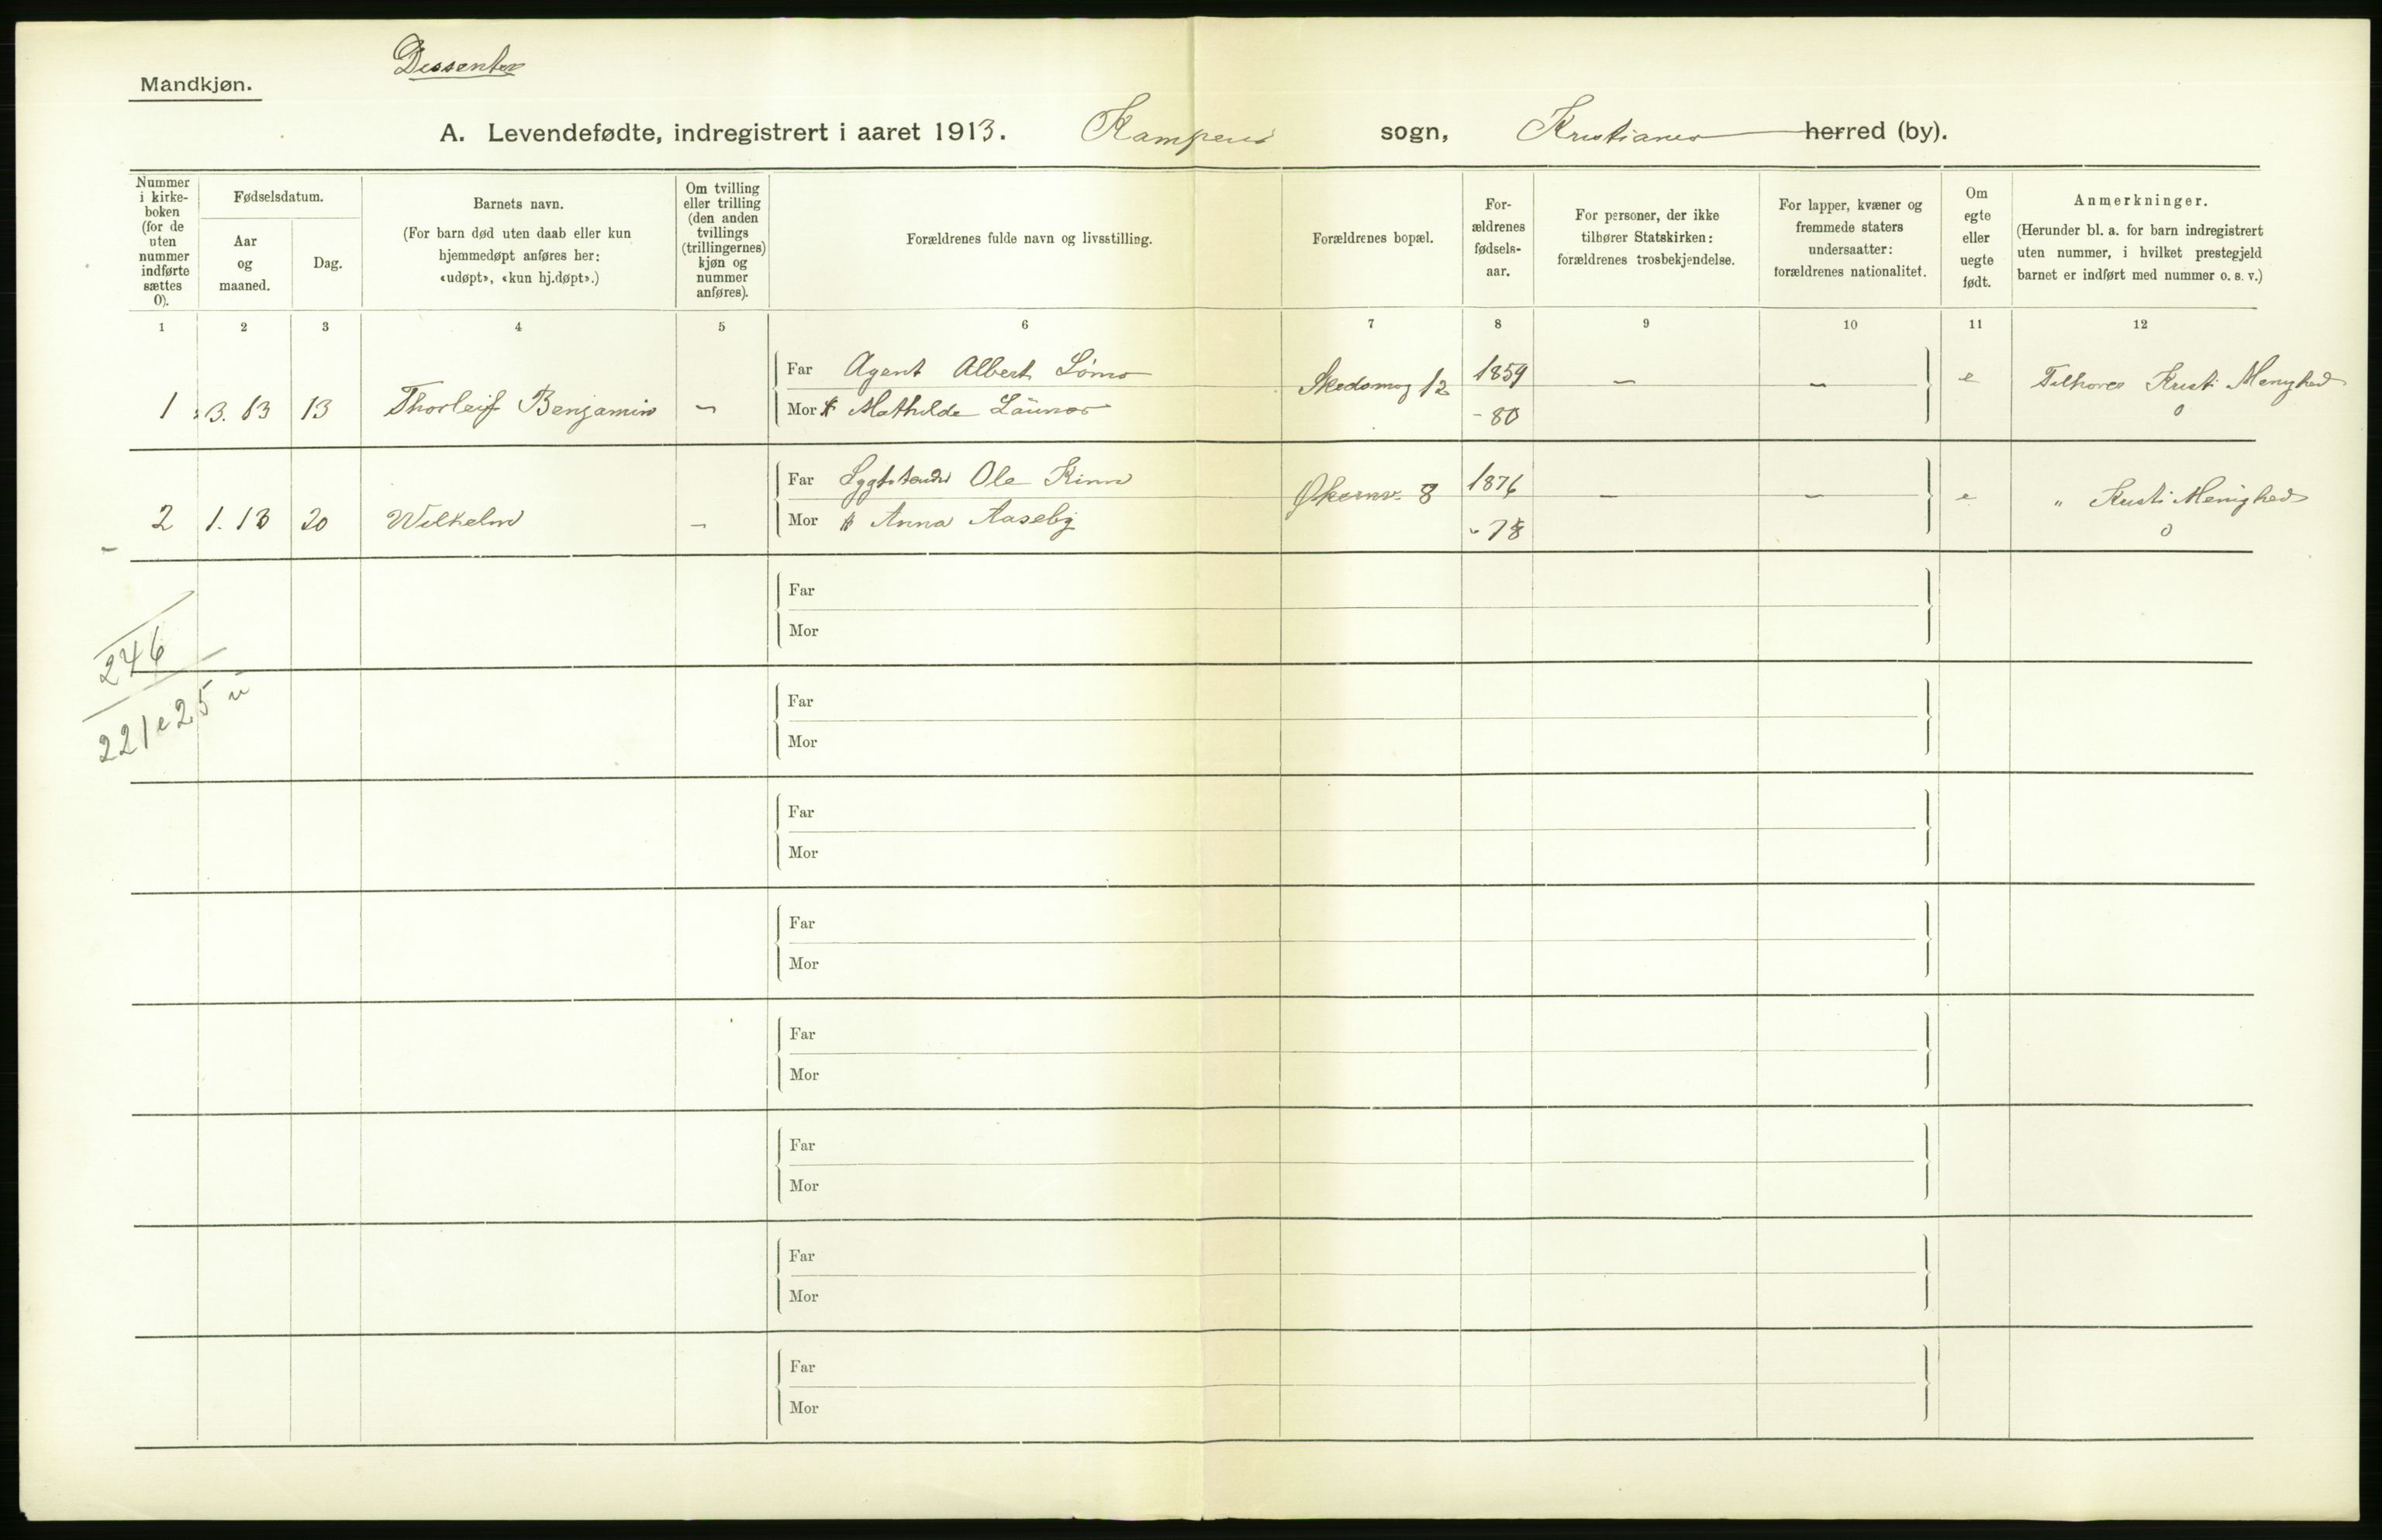 Dissenter
Mandkjøn.
A. Levendefødte, indregistrert i aaret 1913. Kampens sogn, Kristiania herred (by).
Nummer i kirke-boken (for de uten nummer indførte sættes 0).
Fødselsdatum.
Aar og maaned.
Dag.
Barnets navn.
(For barn død uten daab eller kun hjemmedøpt anføres her: «udøpt», «kun hj.døpt».)
Om tvilling eller trilling (den anden tvillings (trillingernes) kjøn og nummer anføres).
Forældrenes fulde navn og livsstilling.
Forældrenes bopæl.
For-ældrenes fødsels-aar.
For personer, der ikke tilhører Statskirken: forældrenes trosbekjendelse.
For lapper, kvæner og fremmede staters undersaatter: forældrenes nationalitet.
Om egte eller uegte født.
Anmerkninger.
(Herunder bl. a. for barn indregistrert uten nummer, i hvilket prestegjeld barnet er indført med nummer o. s. v.)
1 2 3 4 5 6 7 8 9 10 11 12
Far Agent Albert Lømo Skedsmog 12 1859 — — e Tilhører Kristi Menighed
1 3. 13 13 Thorleif Benjamin — Mor Mathilde - 80 0
Far Ole Kinn Økernv. 8 1876 — — e " Kristi Menighed
2 1. 13 20 Wilhelm — Mor Anna Aaseby - 78 0
Far
Mor
246
221 e 25 u
Far
Mor
Far
Mor
Far
Mor
Far
Mor
Far
Mor
Far
Mor
Far
Mor